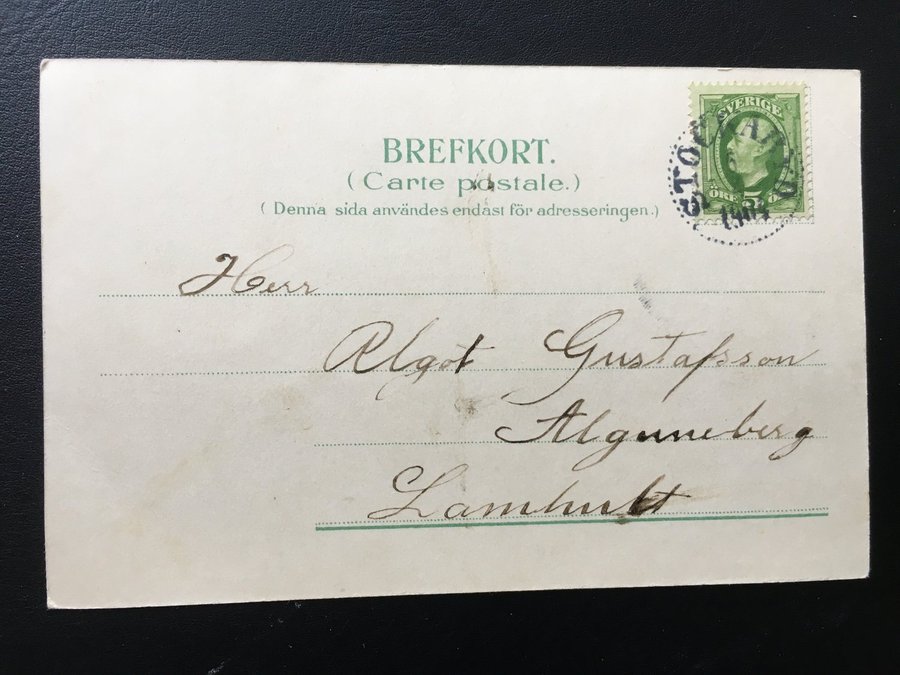 BREFKORT.
(Carte postale.)
(Denna sida användes endast för adresseringen.)
SVERIGE
5
ÖRE
Herr
Algot Gustafsson
Algunneberg
Lamhult